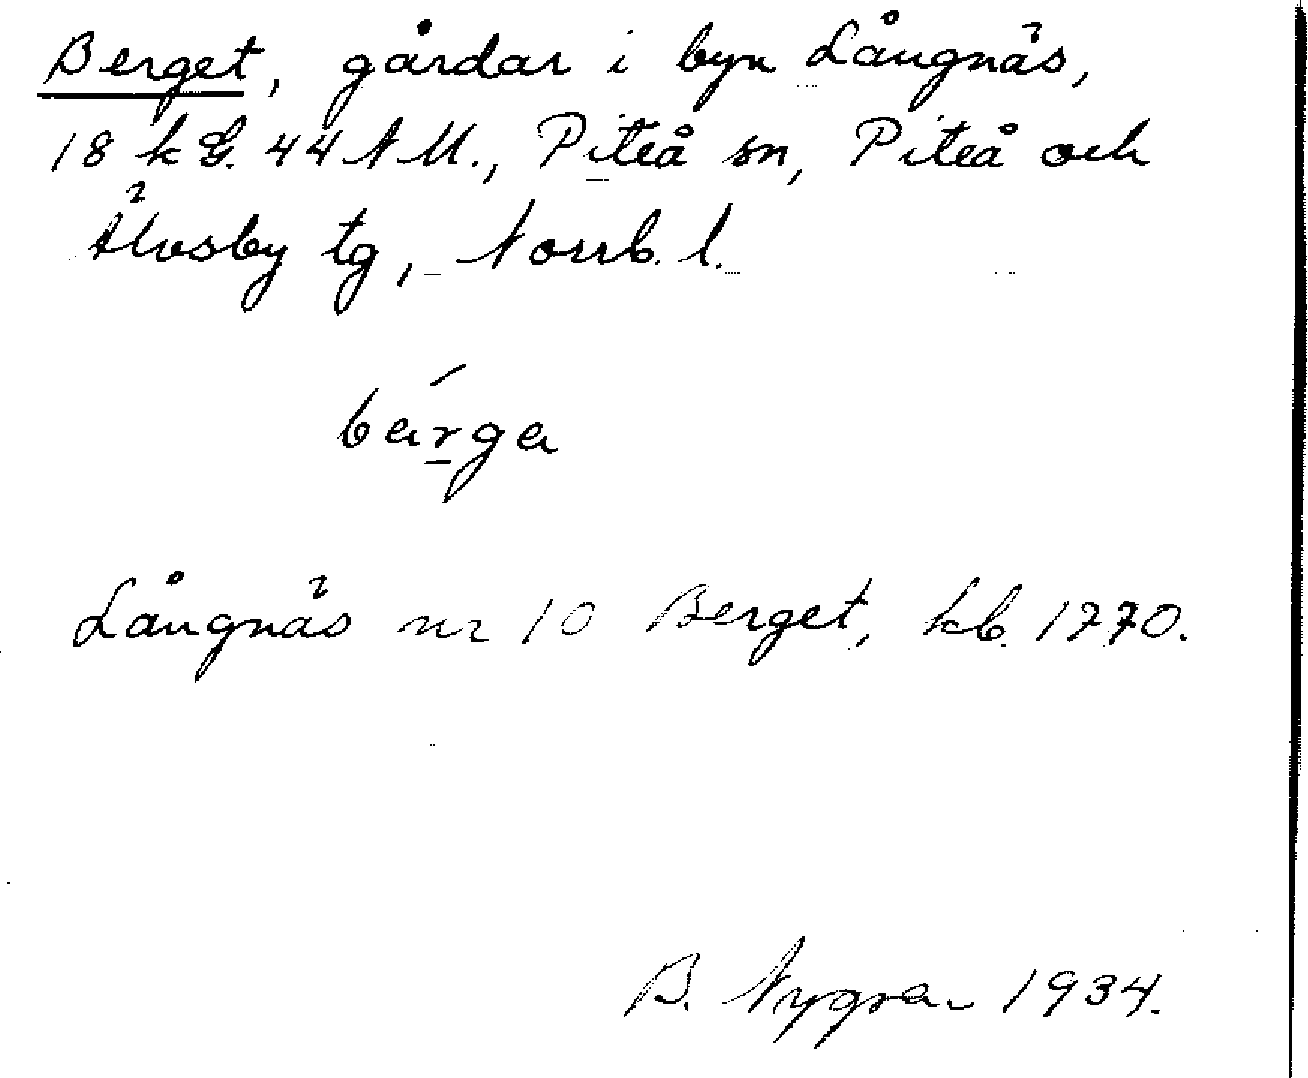 Berget, gårdar i byn Långnäs,
18 k G. 44 N M., Piteå sn, Piteå och
Älvsby tg, Norrb. l.
bárga
Långnäs nr 10 Berget, kb. 1770.
B. Nygren 1934.